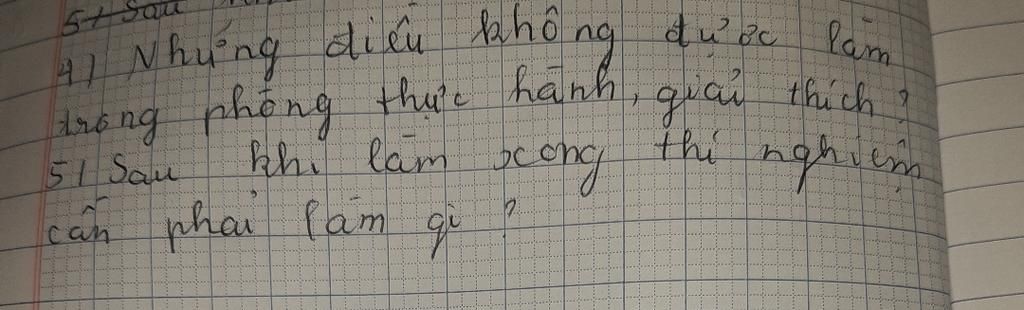 5/ Sau
4) Những điều không được làm
trong phòng thực hành, giải thích?
5/ Sau khi làm xong thí nghiệm
cần phải làm gì?